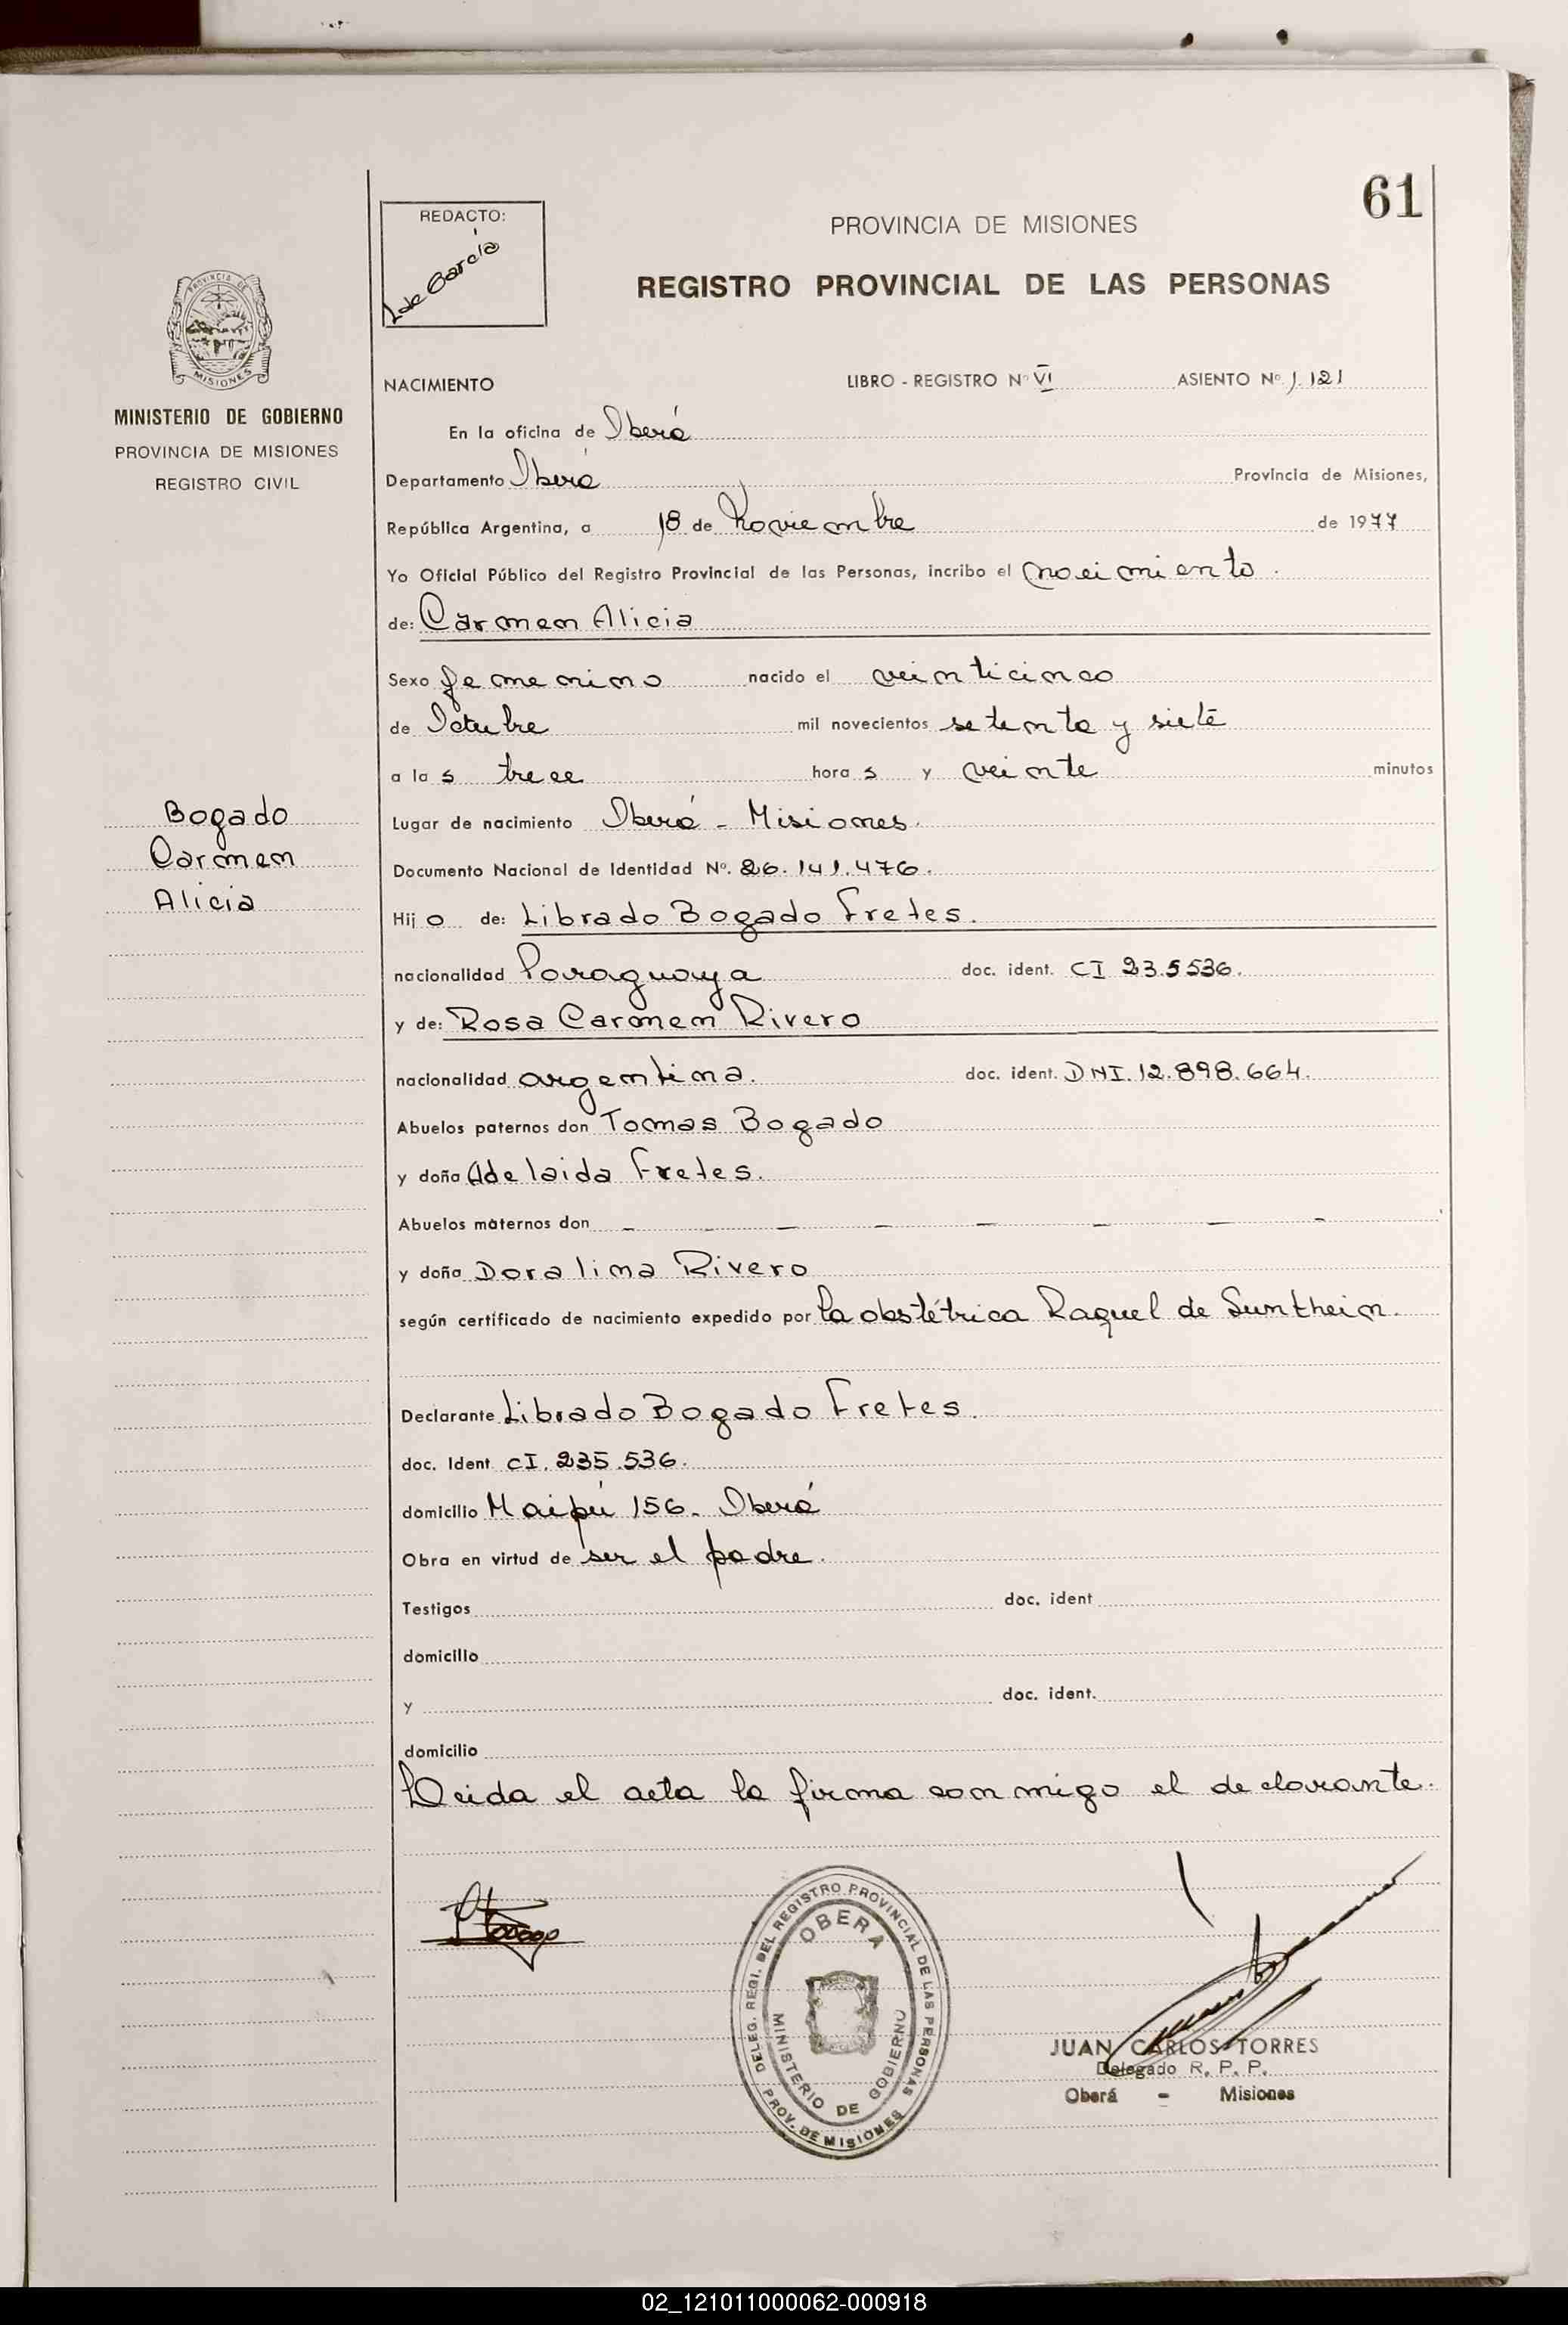 61
REDACTO:
L de García
PROVINCIA DE MISIONES
REGISTRO PROVINCIAL DE LAS PERSONAS
PROVINCIA DE
MISIONES
MINISTERIO DE GOBIERNO
PROVINCIA DE MISIONES
REGISTRO CIVIL
NACIMIENTO LIBRO - REGISTRO Nº VI ASIENTO Nº 1.121
En la oficina de Oberá
Departamento Oberá Provincia de Misiones,
República Argentina, a 18 de Noviembre de 1977
Yo Oficial Público del Registro Provincial de las Personas, incribo el nacimiento.
de: Carmen Alicia
Sexo femenino nacido el veinticinco
de Octubre mil novecientos setenta y siete
a las trece horas y veinte minutos
Bogado
Carmen
Alicia
Lugar de nacimiento Oberá - Misiones.
Documento Nacional de Identidad Nº. 26.141.476.
Hijo de: Librado Bogado Fretes.
nacionalidad Paraguaya doc. ident. CI 235536.
y de: Rosa Carmen Rivero
nacionalidad argentina. doc. ident. DNI. 12.898.664.
Abuelos paternos don Tomas Bogado
y doña Adelaida Fretes.
Abuelos maternos don - - - - - - - -
y doña Doralina Rivero
según certificado de nacimiento expedido por la obstétrica Raquel de Suntheim.
Declarante Librado Bogado Fretes.
doc. Ident CI. 235.536.
domicilio Maipú 156. Oberá
Obra en virtud de ser el padre.
Testigos doc. ident
domicilio
y doc. ident.
domicilio
Leida el acta la firma conmigo el declarante.
DELEG. REGI. DEL REGISTRO PROVINCIAL DE LAS PERSONAS
PROV. DE MISIONES
OBERA
MINISTERIO DE GOBIERNO
JUAN CARLOS TORRES
Delegado R. P. P.
Oberá - Misiones
02_121011000062-000918